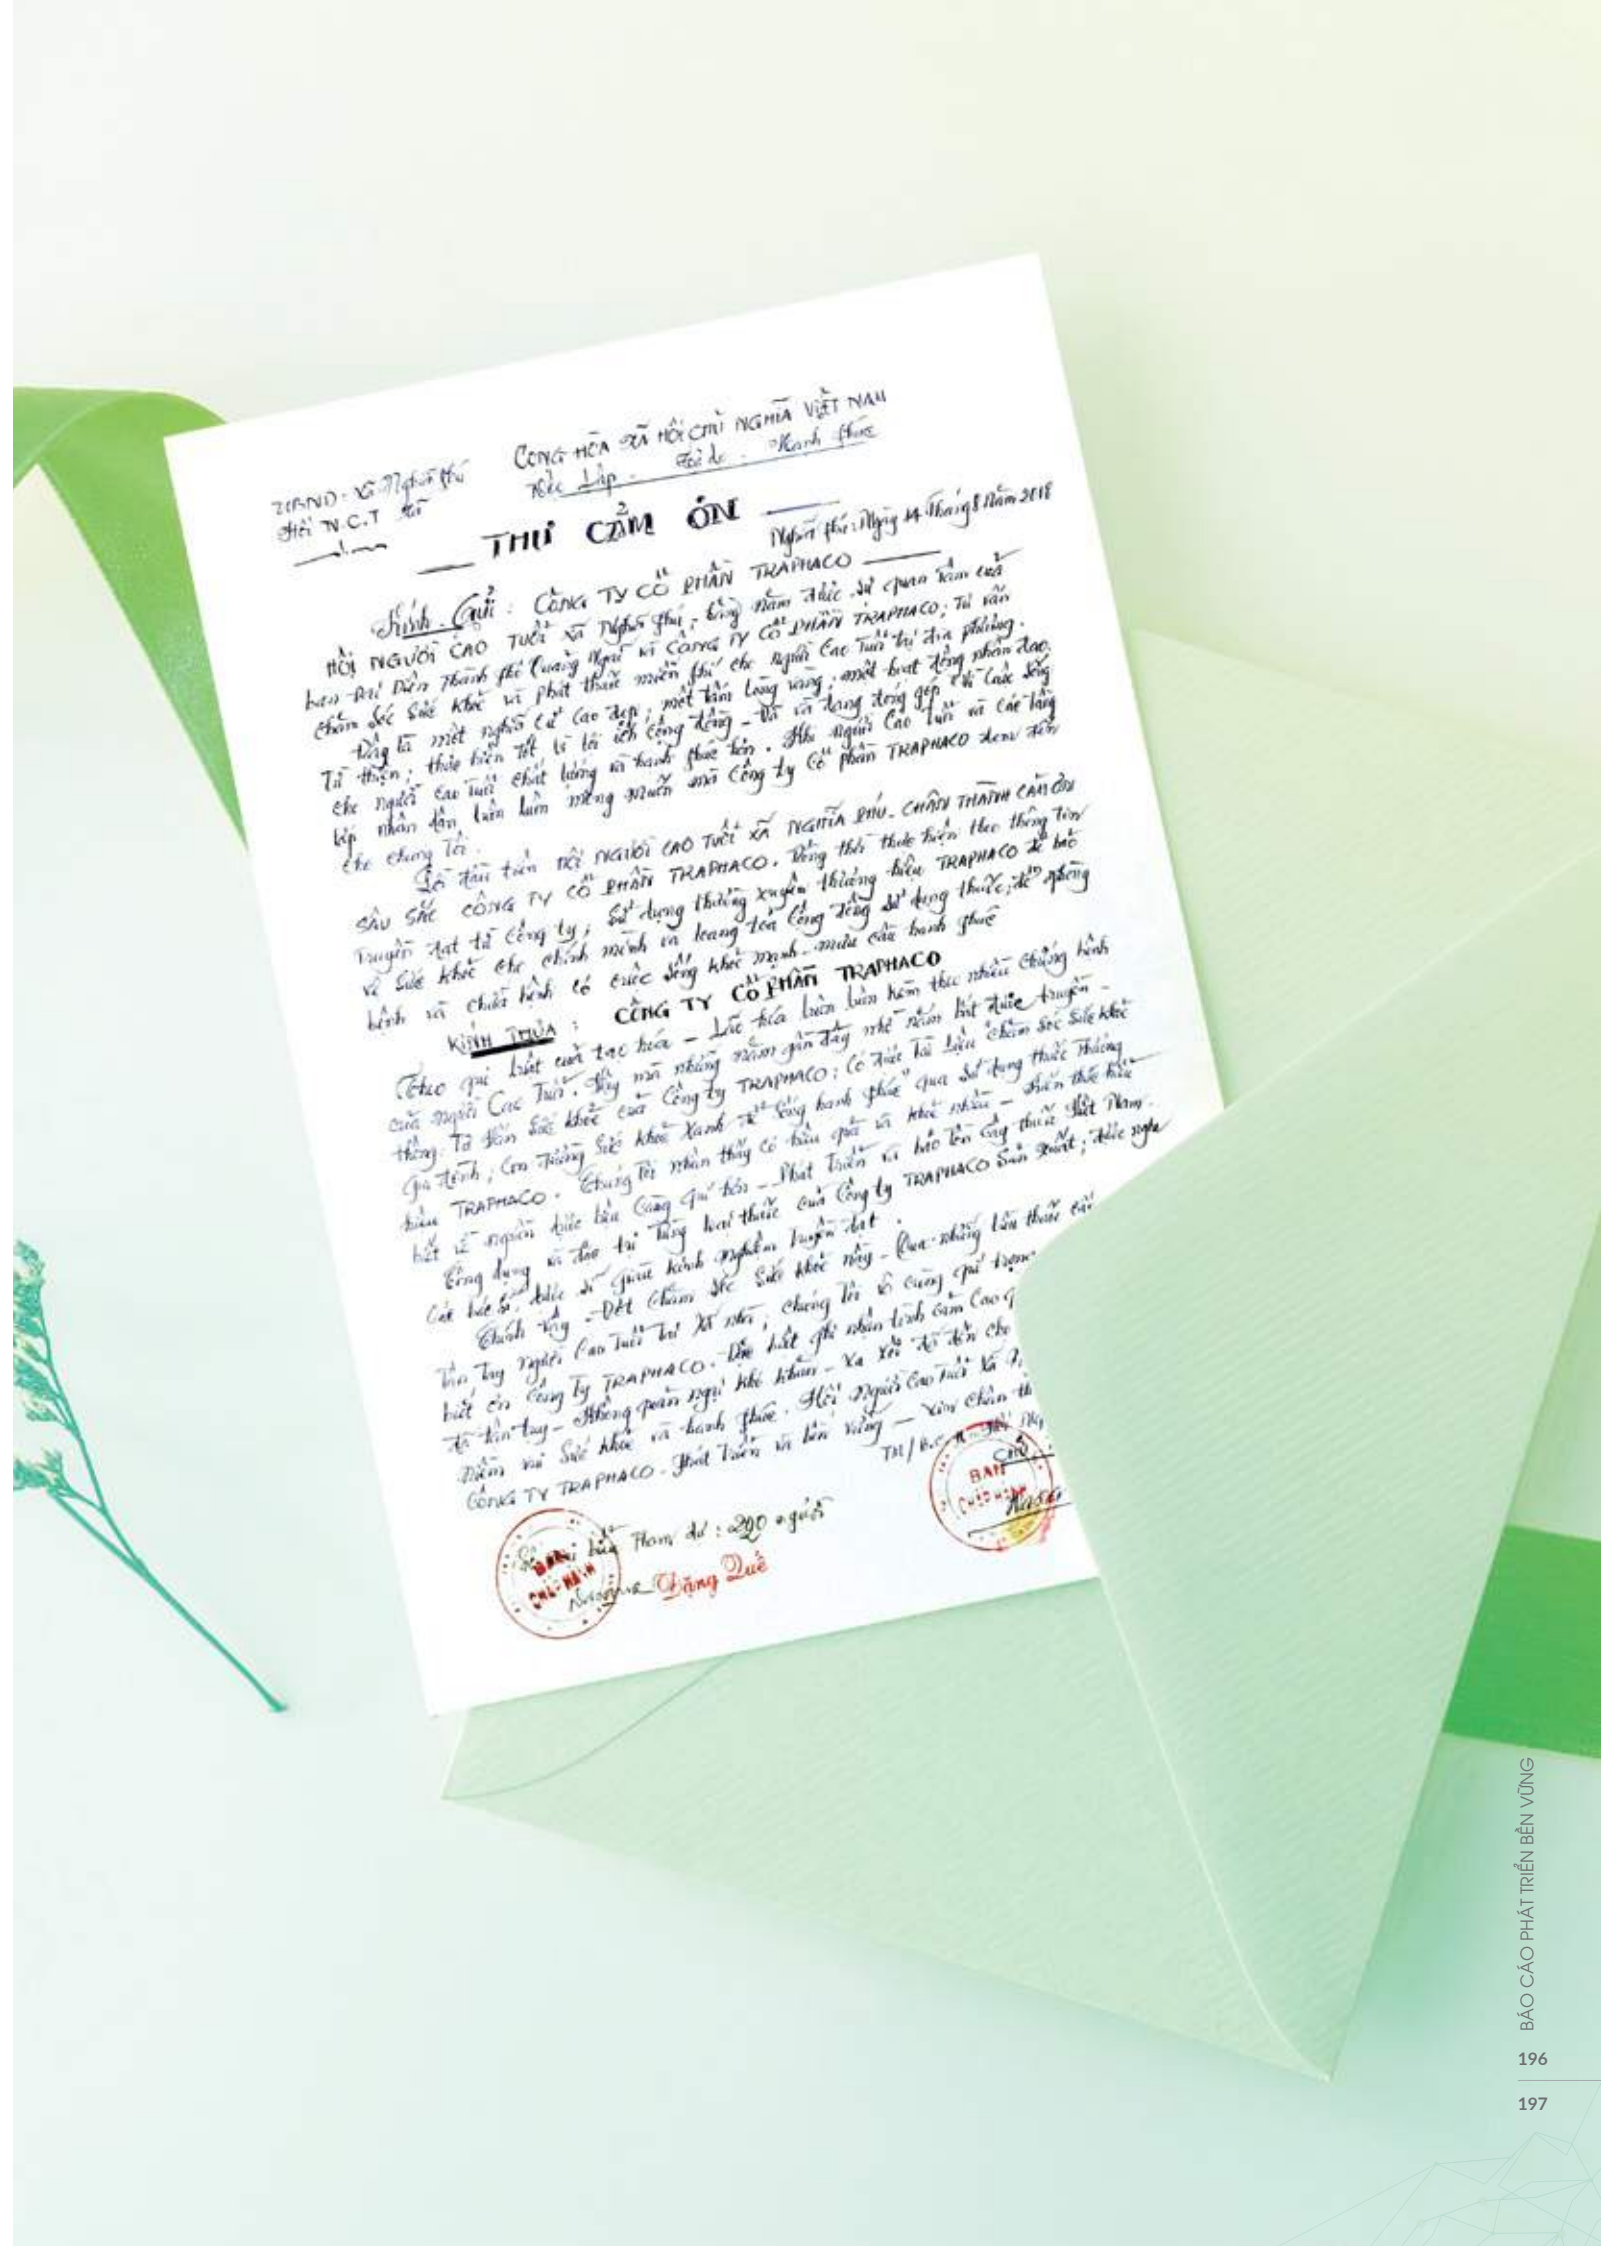 UBND - Xã Nghĩa Phú
Hội N.C.T Xã
CỘNG HÒA XÃ HỘI CHỦ NGHĨA VIỆT NAM
Độc Lập - Tự do - Hạnh phúc
THƯ CẢM ƠN
Nghĩa Phú: Ngày 14 Tháng 8 Năm 2018
Kính Gửi : CÔNG TY CỔ PHẦN TRAPHACO
HỘI NGƯỜI CAO TUỔI XÃ Nghĩa Phú, năm được sự quan tâm của
ban Đại Diện Thành phố Quảng Ngãi và CÔNG TY CỔ PHẦN TRAPHACO; Tư vấn
chăm sóc Sức khỏe và phát thuốc miễn phí cho người Cao Tuổi tại địa phương.
Đây là một nghĩa cử Cao đẹp, một tấm lòng vàng, một hoạt động nhân đạo,
Từ thiện; thực hiện Tốt vì lợi ích cộng đồng - Đã và đang đóng góp vì Cuộc sống
cho người cao tuổi chất lượng và hạnh phúc hơn. Hội người Cao Tuổi và các tầng
lớp nhân dân luôn luôn mong muốn mà Công ty Cổ phần TRAPHACO đem đến
cho chúng Tôi.
Lời đầu tiên HỘI NGƯỜI CAO TUỔI XÃ NGHĨA PHÚ. CHÂN THÀNH CẢM ƠN
SÂU SẮC CÔNG TY CỔ PHẦN TRAPHACO. Đồng thời thực hiện theo thông tin
Truyền đạt từ Công ty, Sử dụng thường xuyên thương hiệu TRAPHACO để bảo
vệ Sức khỏe cho chính mình và lang tỏa Cộng đồng sử dụng thuốc, để phòng
bệnh và chữa bệnh có cuộc sống khỏe mạnh mưu cầu hạnh phúc
KÍNH THƯA : CÔNG TY CỔ PHẦN TRAPHACO
Theo qui luật của tạo hóa - Lão hóa luôn luôn kèm theo nhiều chứng bệnh
của người Cao Tuổi. Thế mà những năm gần đây nhờ nắm bắt được truyền
thông Tư vấn Sức khỏe của Công ty TRAPHACO; Có được tài liệu "Chăm Sóc Sức khỏe
gia đình, Con đường Sức khỏe Xanh để Sống hạnh phúc" qua Sử dụng thuốc thương
hiệu TRAPHACO. Chúng Tôi nhận thấy có hiệu quả và khỏe nhiều - nhận thức hiểu
biết về nguồn dược liệu Càng quí hơn - Phát Triển và bảo tồn Cây thuốc Việt Nam.
Công dụng và điều trị Từng loại thuốc của Công ty TRAPHACO Sản Xuất; được nghe
Các bác sĩ, dược sĩ giàu kinh nghiệm truyền đạt.
Chính vậy - Đợt Chăm sóc Sức khỏe này - Qua những liều thuốc
Tận Tay người Cao Tuổi tại Xã nhà, chúng Tôi vô cùng quí trọng
biết ơn Công Ty TRAPHACO. ghi nhận tình Cảm Cao q
đã tận tụy - Không quản ngại khó khăn - Xa xôi đã đến cho
niềm vui Sức khỏe và hạnh phúc. Hội người Cao Tuổi Xã
CÔNG TY TRAPHACO. Phát Triển và bền vững - Xin Chân th
TM/ B.C.H
BAN
CHẤP HÀNH
Tham dự : 290 người
BAN
CHẤP HÀNH
Đặng Quế
BÁO CÁO PHÁT TRIỂN BỀN VỮNG
196
197